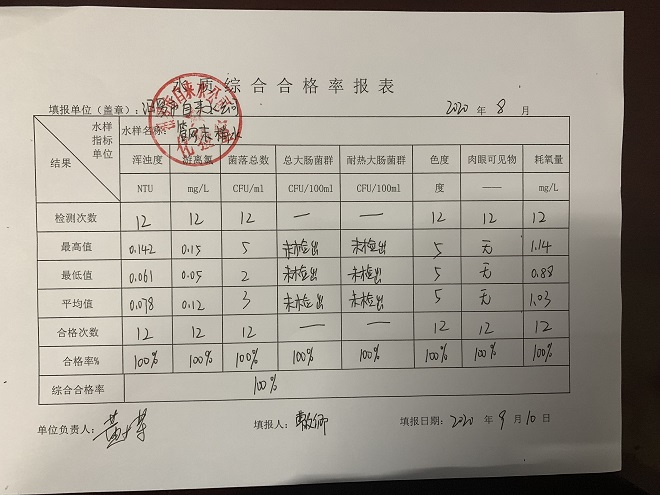 水质综合合格率报表
填报单位（盖章）：自来水公司 2020 年 8 月
水样 指标 单位 结果 水样名称：管网末梢水
浑浊度 游离氯 菌落总数 总大肠菌群 耐热大肠菌群 色度 肉眼可见物 耗氧量
NTU mg/L CFU/ml CFU/100ml CFU/100ml 度 —— mg/L
检测次数 12 12 12 — — 12 12 12
最高值 0.142 0.15 5 未检出 未检出 5 无 1.14
最低值 0.061 0.05 2 未检出 未检出 5 无 0.88
平均值 0.078 0.12 3 未检出 未检出 5 无 1.03
合格次数 12 12 12 — — 12 12 12
合格率% 100% 100% 100% 100% 100% 100% 100% 100%
综合合格率 100%
单位负责人： 填报人： 填报日期：2020 年 9 月 10 日